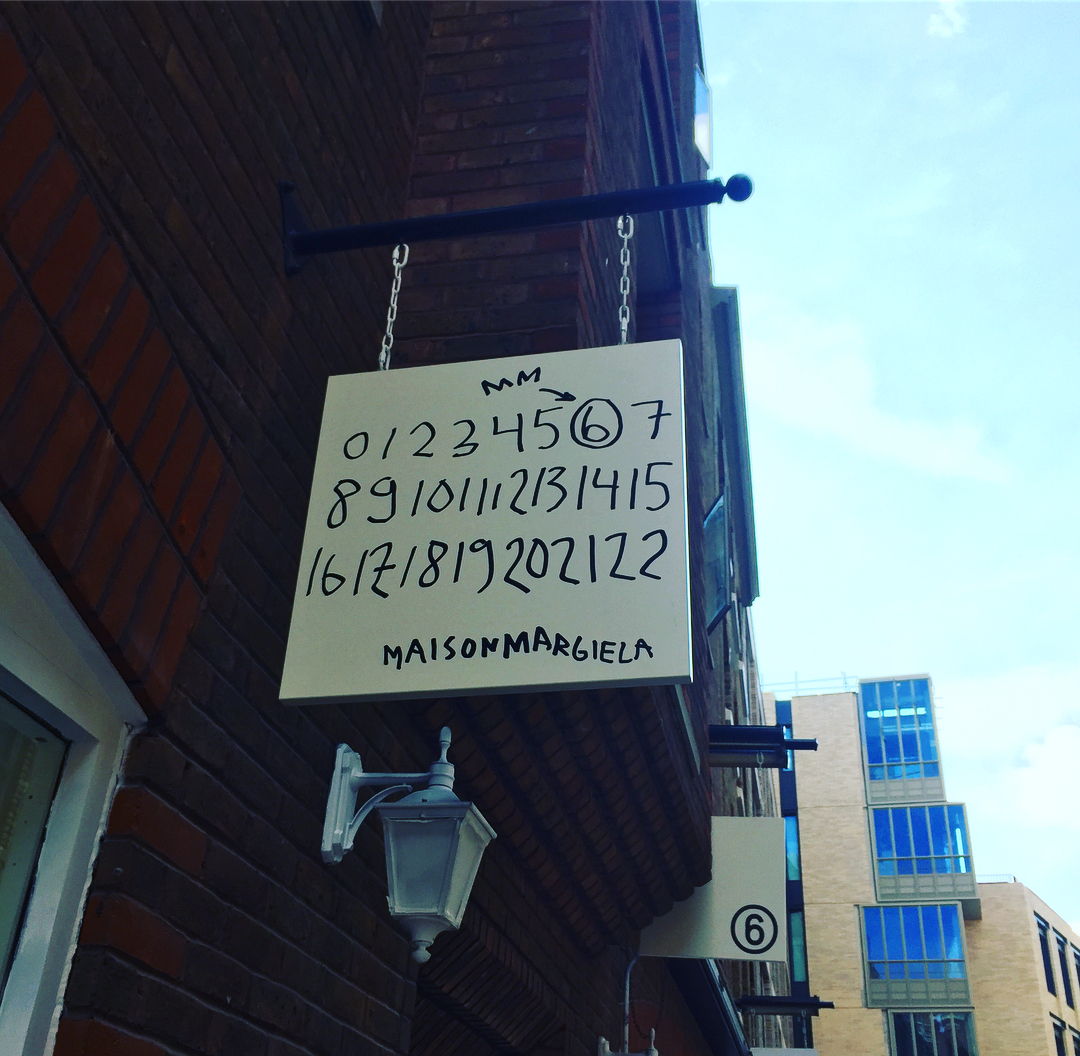 MM
0 1 2 3 4 5 6 7
8 9 10 11 12 13 14 15
16 17 18 19 20 21 22
MAISON MARGIELA
6